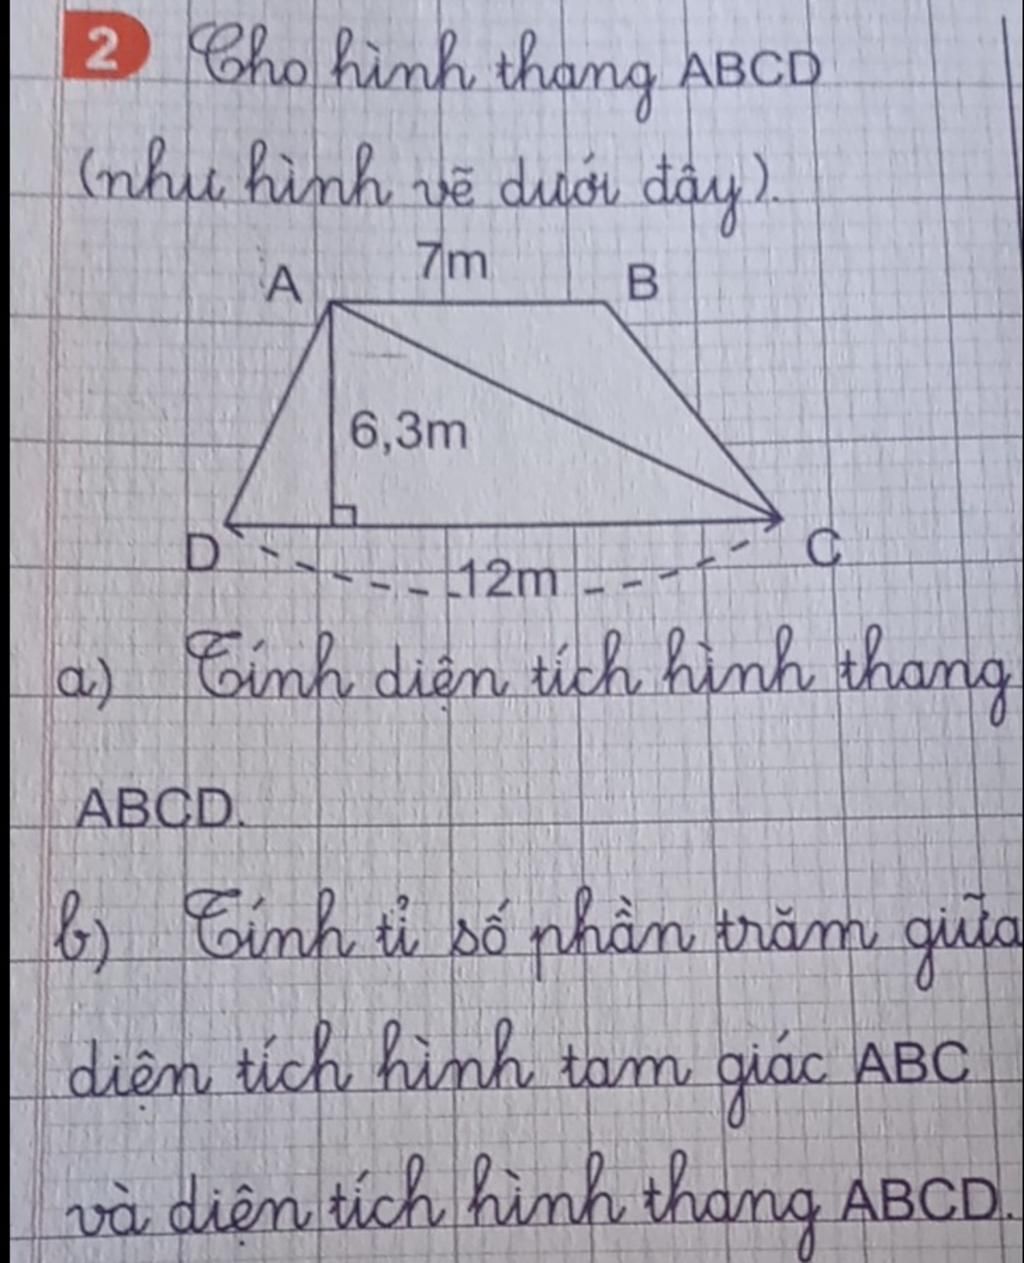 2 Cho hình thang ABCD
(như hình vẽ dưới đây).
7m
A B
6,3m
D C
12m
a) Tính diện tích hình thang
ABCD.
b) Tính tỉ số phần trăm giữa
diện tích hình tam giác ABC
và diện tích hình thang ABCD.